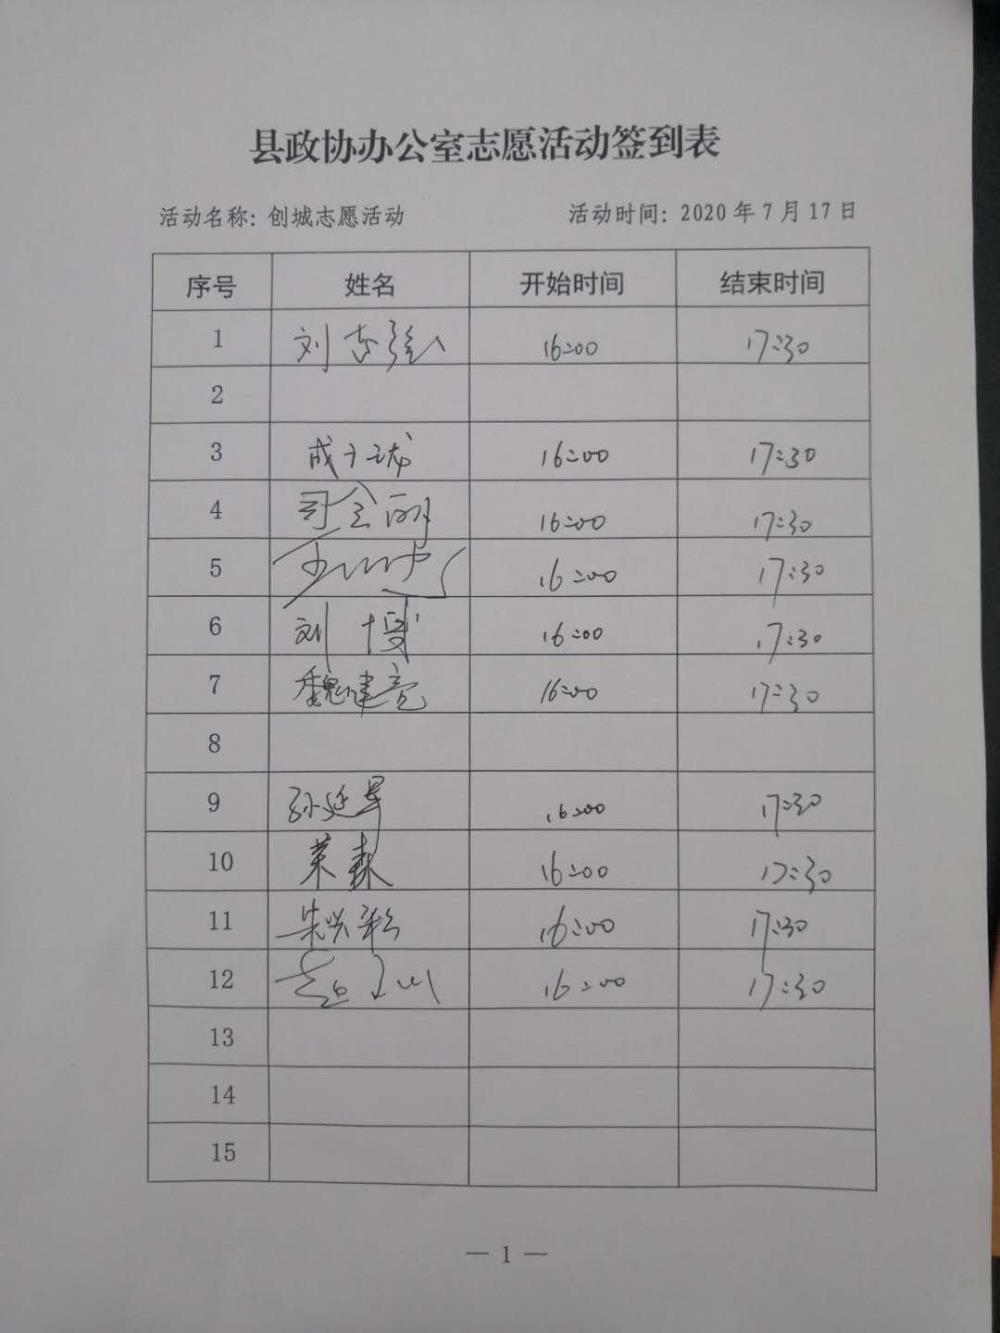 县政协办公室志愿活动签到表
活动名称: 创城志愿活动 活动时间: 2020年7月17日
序号 姓名 开始时间 结束时间
1 刘志强 16:00 17:30
2
3 16:00 17:30
4 司会丽 16:00 17:30
5 16:00 17:30
6 刘博 16:00 17:30
7 魏建亮 16:00 17:30
8
9 孙延军 16:00 17:30
10 荣森 16:00 17:30
11 朱兴彩 16:00 17:30
12 16:00 17:30
13
14
15
— 1 —